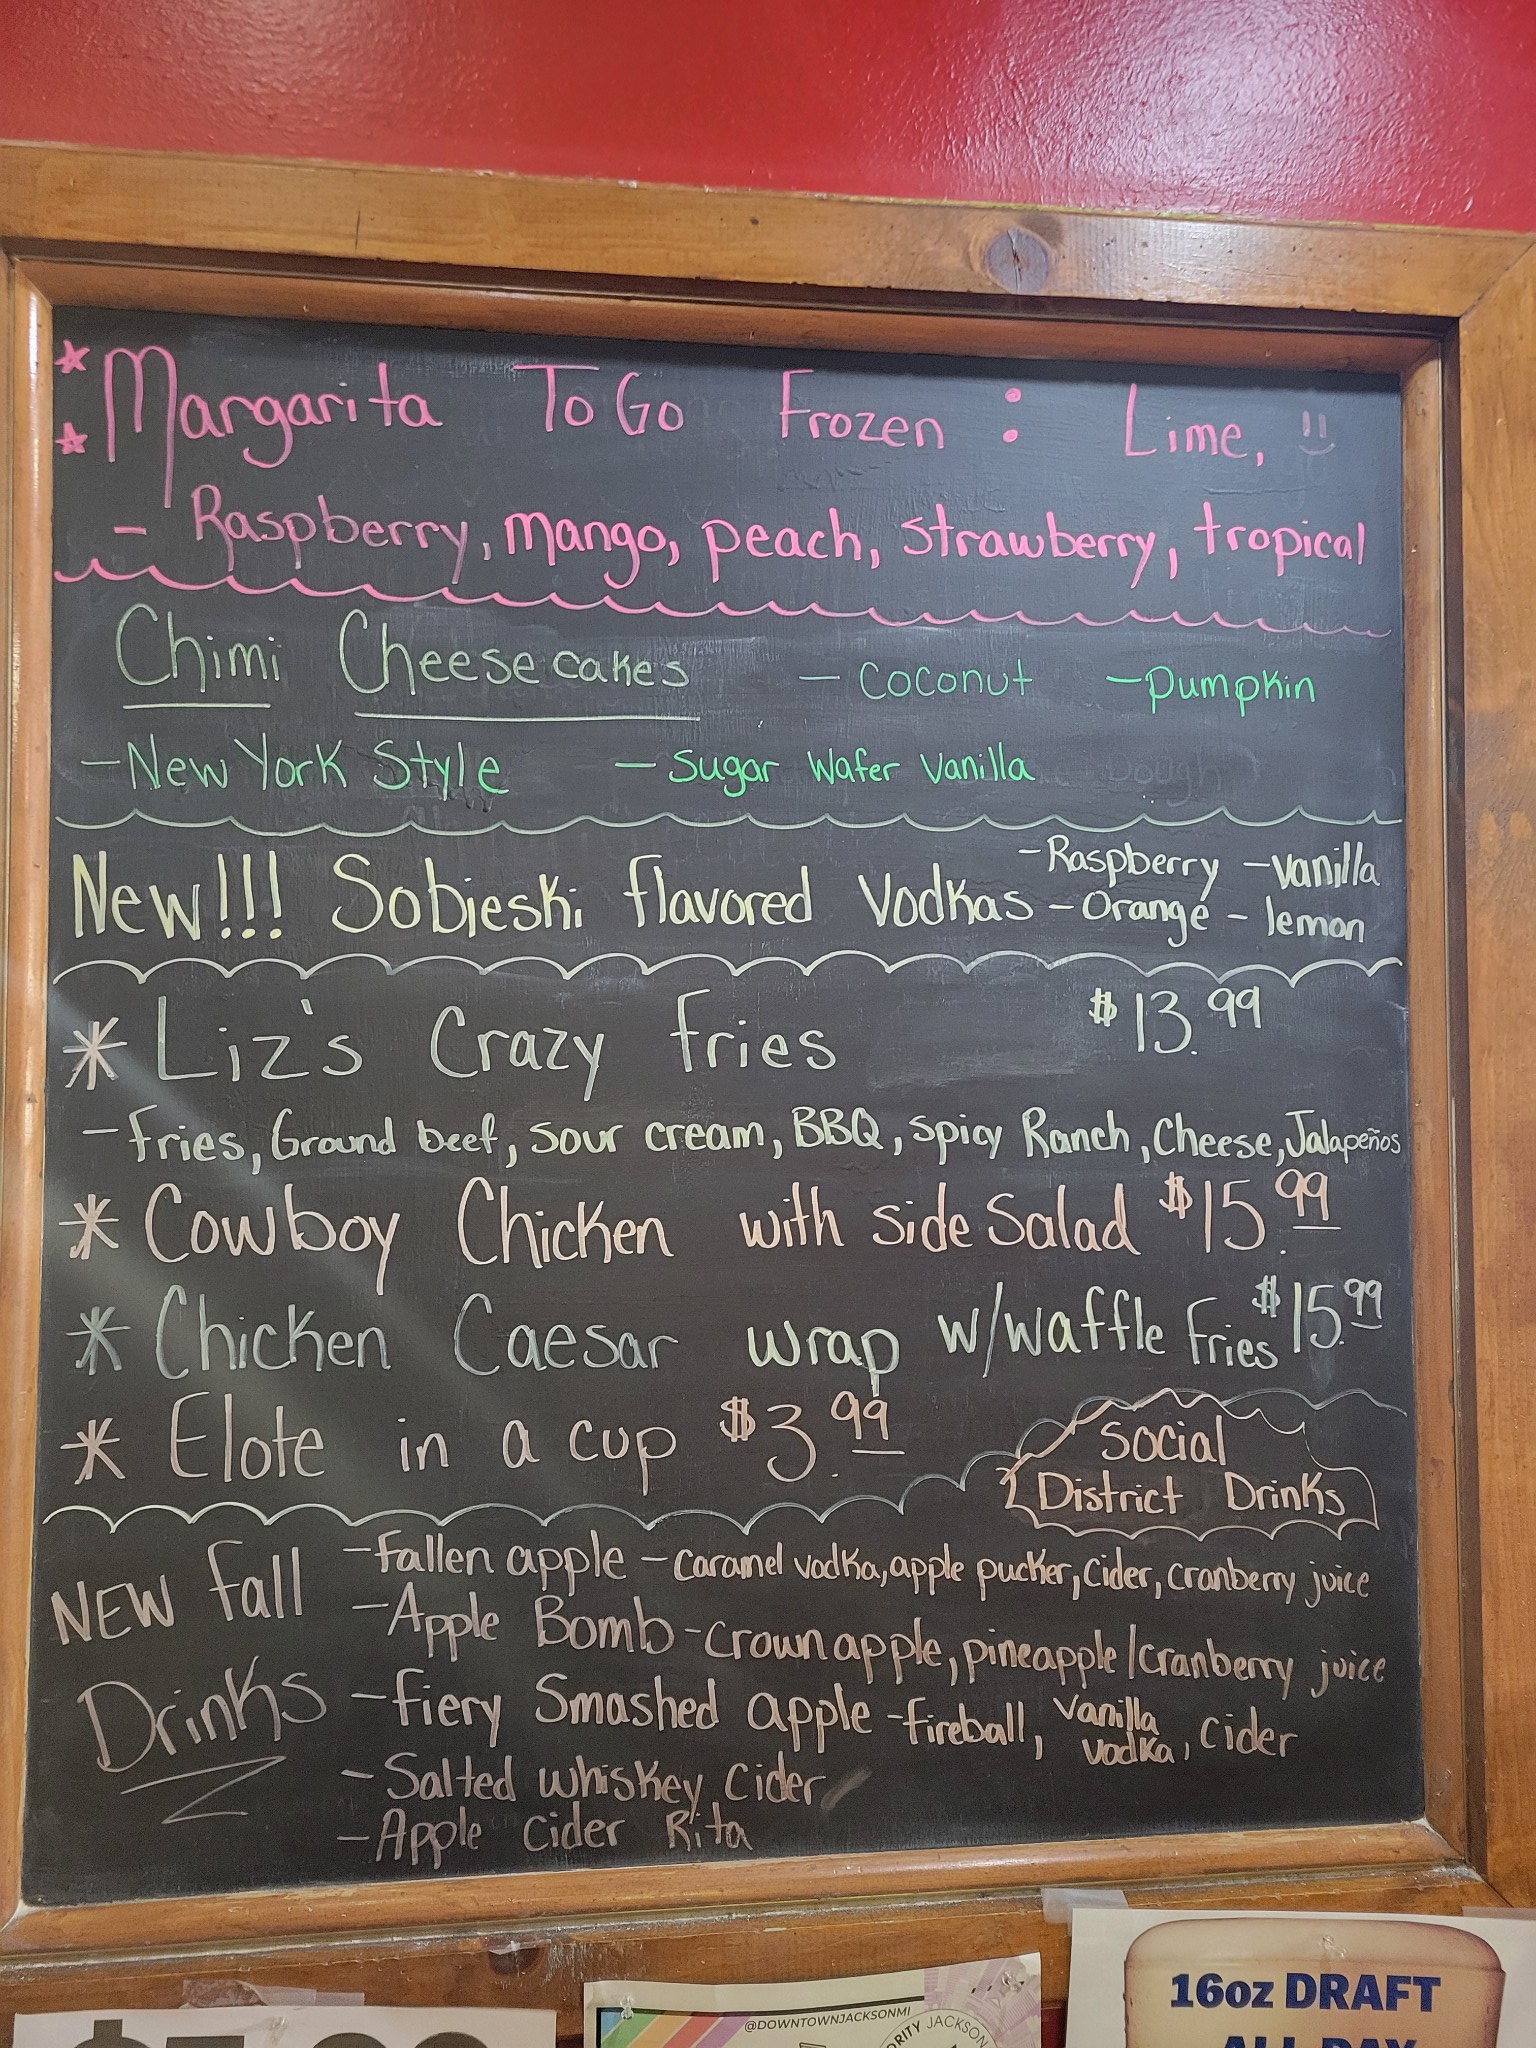 Margarita To Go Frozen : Lime,
- Raspberry, mango, peach, strawberry, tropical
Chimi Cheesecakes - Coconut - Pumpkin
- New York Style - Sugar Wafer Vanilla
New!!! Sobieski flavored Vodkas - Raspberry - vanilla
- Orange - lemon
* Liz's Crazy fries $13.99
- fries, Ground beef, sour cream, BBQ, spicy Ranch, Cheese, Jalapeños
* Cowboy Chicken with side Salad $15.99
* Chicken Caesar wrap w/waffle fries $15.99
* Elote in a cup $3.99
Social
District Drinks
NEW fall Drinks
- Fallen apple - caramel vodka, apple pucker, cider, cranberry juice
- Apple Bomb - crown apple, pineapple/cranberry juice
- fiery Smashed apple - fireball, vanilla vodka, cider
- Salted whiskey Cider
- Apple Cider Rita
@DOWNTOWNJACKSONMI
JACKSON
16oz DRAFT
ALL DAY